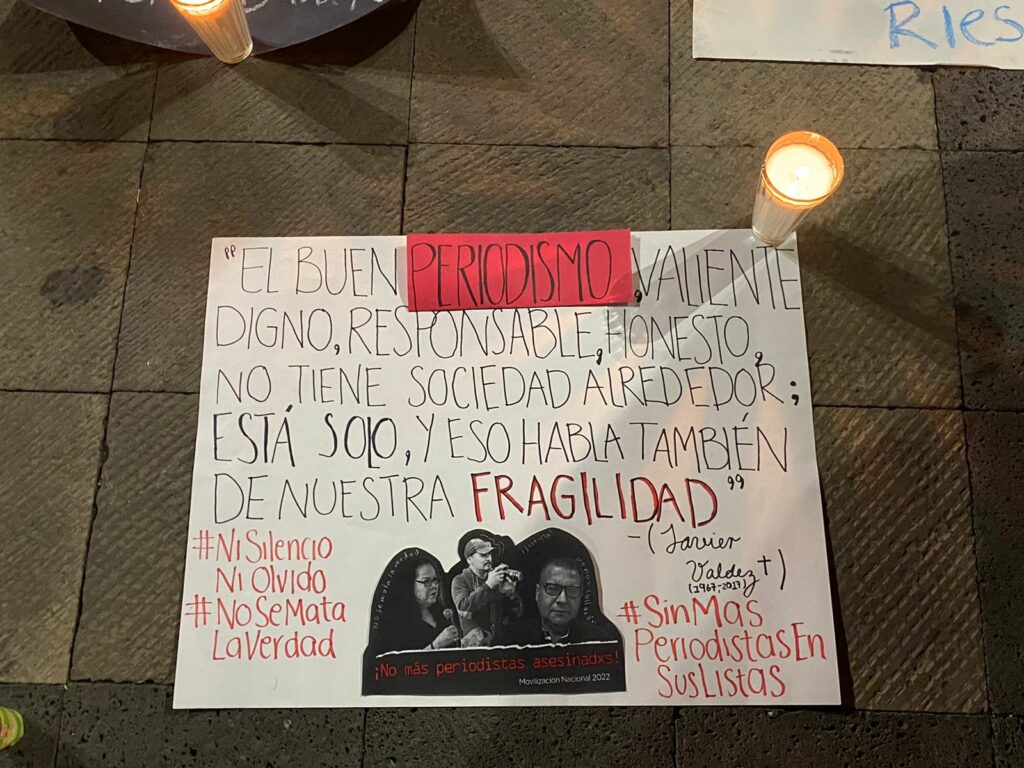 Ries
"EL BUEN PERIODISMO, VALIENTE
DIGNO, RESPONSABLE, HONESTO,
NO TIENE SOCIEDAD ALREDEDOR;
ESTÁ SOLO, Y ESO HABLA TAMBIÉN
DE NUESTRA FRAGILIDAD"
-(Javier
Valdez †)
(1967-2017)
#NiSilencio
Ni Olvido
#NoSeMata
LaVerdad
No se mata la verdad
¡No más periodistas asesinadxs!
Movilización Nacional 2022
#SinMas
PeriodistasEn
SusListas